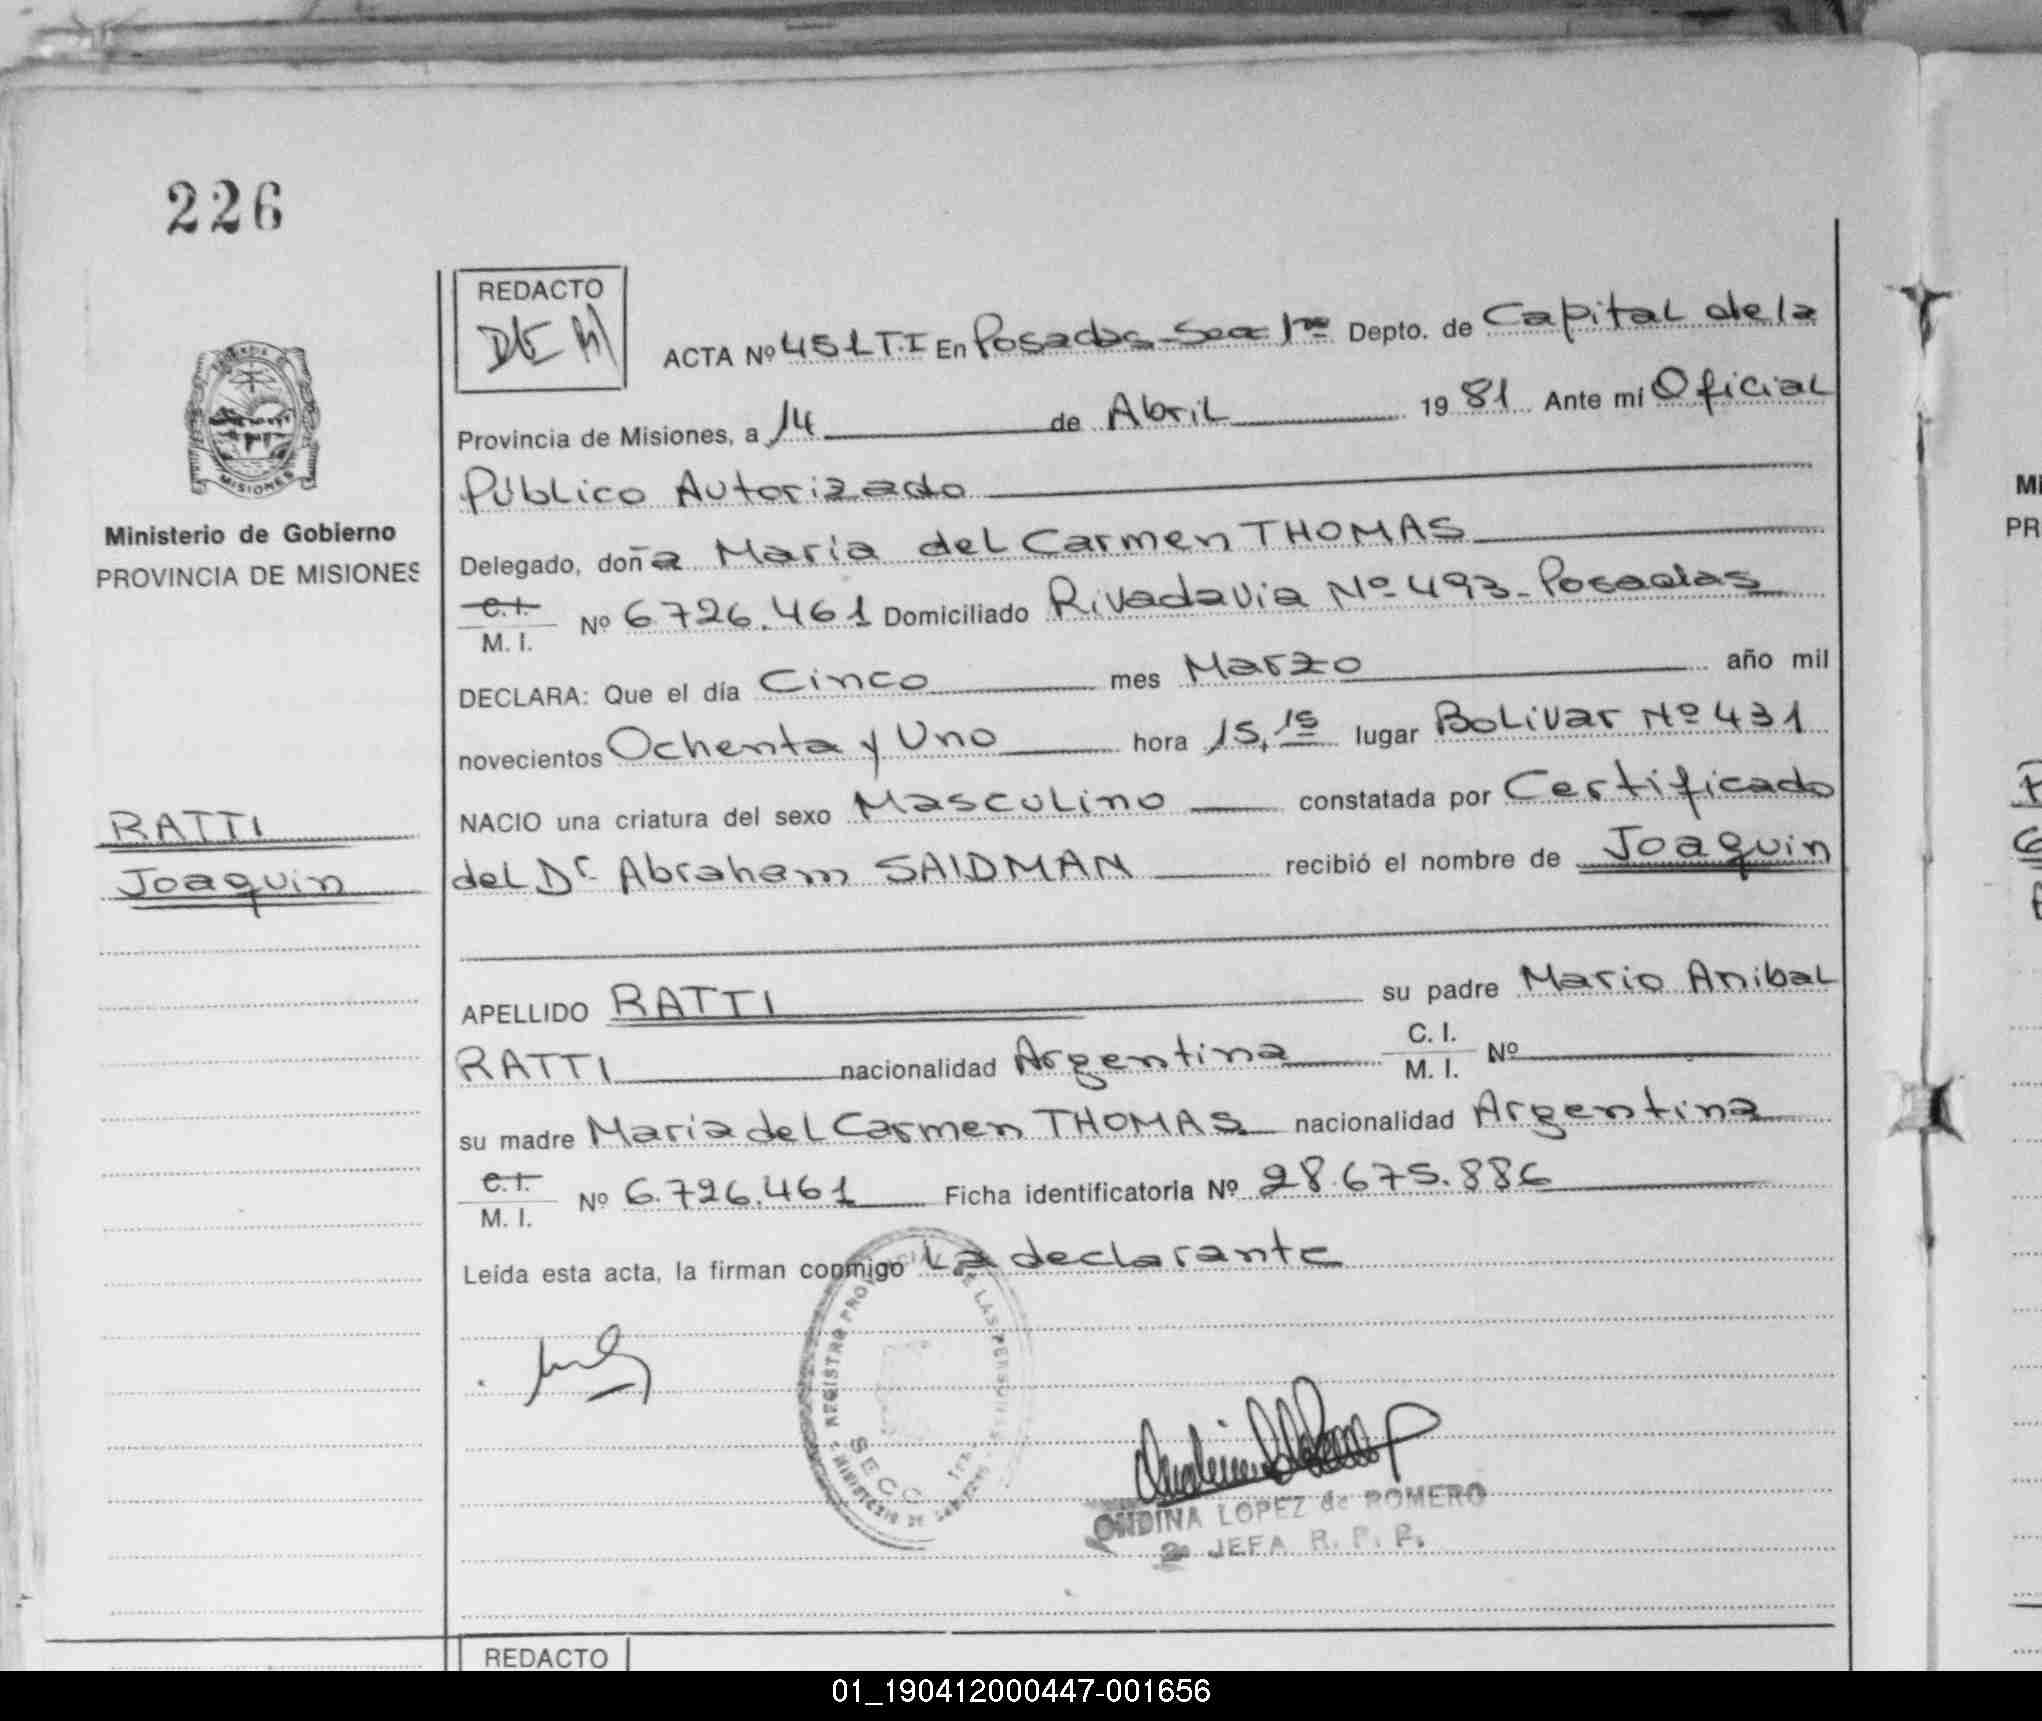 226
REDACTO
ACTA Nº 451 T.I En Posadas-Secc 1ra Depto. de Capital de la
Provincia de Misiones, a 14 de Abril 1981 Ante mí Oficial
Público Autorizado
Delegado, doña Maria del Carmen THOMAS
C.I.
M. I. Nº 6.726.461 Domiciliado Rivadavia Nº 493- Posadas
DECLARA: Que el día Cinco mes Marzo año mil
novecientos Ochenta y Uno hora 15,15 lugar Bolivar Nº 431
NACIO una criatura del sexo Masculino constatada por Certificado
del Dr. Abraham SAIDMAN recibió el nombre de Joaquin
APELLIDO RATTI su padre Mario Anibal
RATTI nacionalidad Argentina C. I.
M. I. Nº
su madre Maria del Carmen THOMAS nacionalidad Argentina
C.I.
M. I. Nº 6.726.461 Ficha identificatoria Nº 28.675.886
Leída esta acta, la firman conmigo La declarante
MISIONES
Ministerio de Gobierno
PROVINCIA DE MISIONES
RATTI
Joaquin
REGISTRO PROVINCIAL DE LAS PERSONAS
MINISTERIO DE GOBIERNO
ONDINA LOPEZ de ROMERO
2º JEFA R. P. P.
REDACTO
PR
01_190412000447-001656